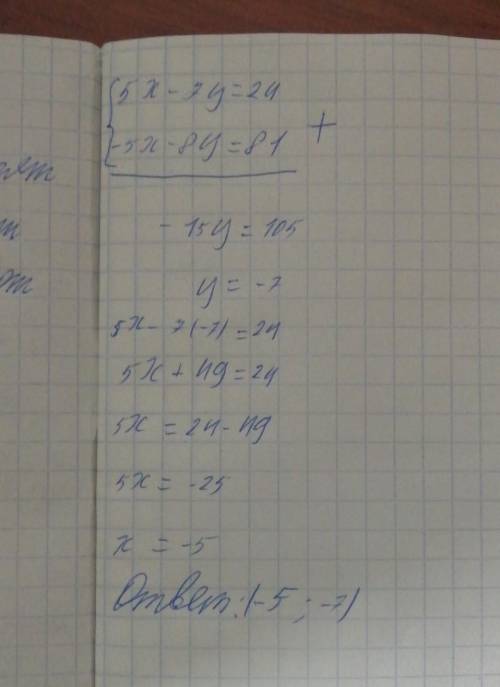 {5x - 7y = 24
{-5x - 8y = 81 +
- 15y = 105
y = -7
5x - 7(-7) = 24
5x + 49 = 24
5x = 24 - 49
5x = -25
x = -5
Ответ: (-5; -7)